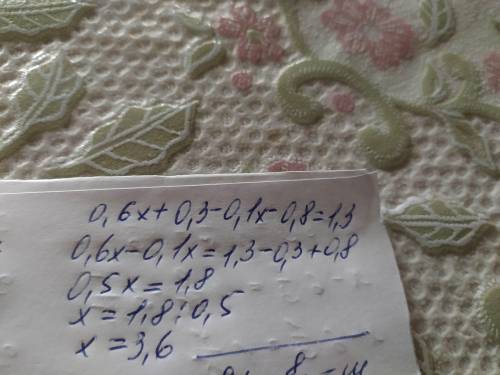 0,6x+0,3-0,1x-0,8=1,3
0,6x-0,1x=1,3-0,3+0,8
0,5x=1,8
x=1,8:0,5
x=3,6